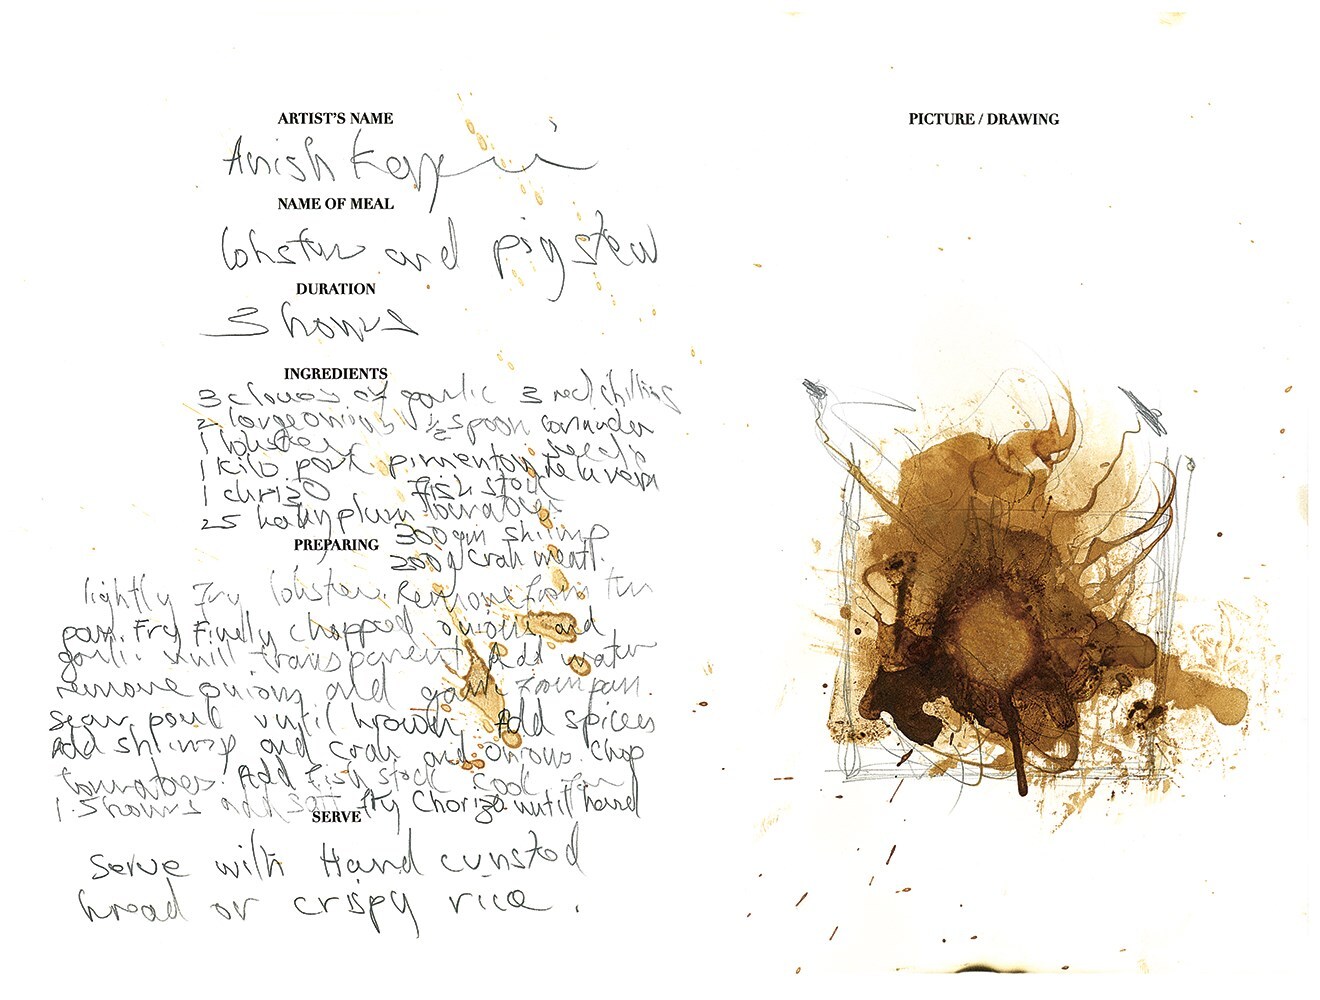 ARTIST'S NAME
Anish Kapoor
NAME OF MEAL
lobster and pig stew
DURATION
3 hours
INGREDIENTS
3 cloves of garlic 3 red chillies
2 large onions 1/2 spoon coriander
1 lobster seeds
1 kilo pork pimenton de la vera
1 chrizo fish stock
25 baby plum tomatoes
300 gm shrimp
PREPARING
200 g crab meat.
lightly fry lobster. Remove from the
pan. Fry Finely chopped onions and
garlic until transparent. Add water
remove onions and garlic from pan.
Sear pork until brown. Add spices
Add shrimp and crab and onions. Chop
tomatoes. Add fish stock Cook for
1.5 hours add salt fry Chorizo until hard
SERVE
Serve with Hard crusted
bread or crispy rice.
PICTURE / DRAWING